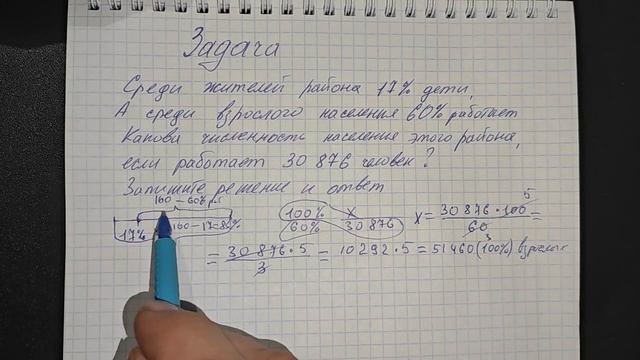 Задача
Среди жителей района 17% дети,
А среди взрослого населения 60% работает
Какова численность населения этого района,
если работает 30 876 человек?
Запишите решение и ответ
100 – 60% раб
17% 100 – 17 = 83%
100% x
60% 30 876
x = 30 876 · 100 5 =
60 3
= 30 876 · 5 = 10 292 · 5 = 51 460 (100%) взрослых
3